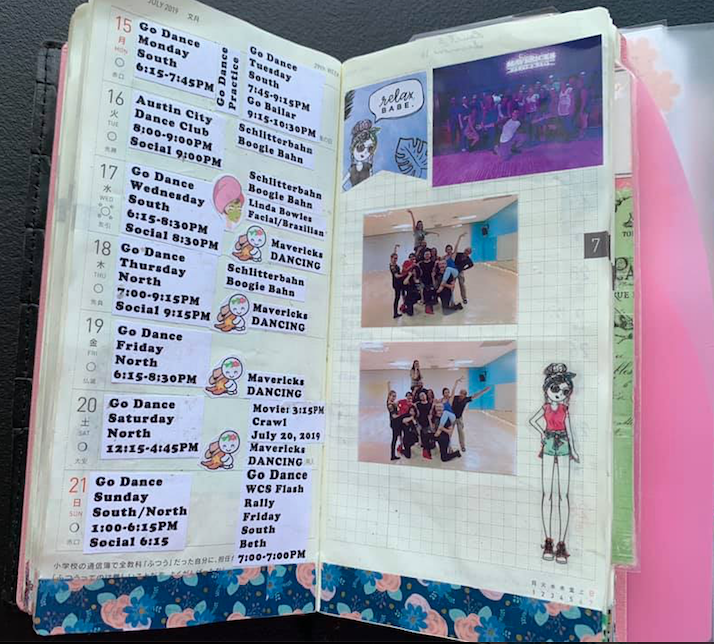 JULY 2019 文月
29th WEEK
15
月
MON
Go Dance
Monday
South
6:15-7:45PM
Go Dance
Practice
Go Dance
Tuesday
South
7:45-9:15PM
Go Bailar
9:15-10:30PM
16
火
TUE
先勝
Austin City
Dance Club
8:00-9:00PM
Social 9:00PM
Schlitterbahn
Boogie Bahn
17
水
WED
友引
Go Dance
Wednesday
South
6:15-8:30PM
Social 8:30PM
Schlitterbahn
Boogie Bahn
Linda Bowles
Facial/Brazilian
Mavericks
DANCING
18
木
THU
先負
Go Dance
Thursday
North
7:00-9:15PM
Social 9:15PM
Schlitterbahn
Boogie Bahn
Mavericks
DANCING
19
金
FRI
仏滅
Go Dance
Friday
North
6:15-8:30PM
Mavericks
DANCING
20
土
SAT
大安
Go Dance
Saturday
North
12:15-4:45PM
Movie: 3:15PM
Crawl
July 20, 2019
Mavericks
DANCING
21
日
SUN
赤口
Go Dance
Sunday
South/North
1:00-6:15PM
Social 6:15
Go Dance
WCS Flash
Rally
Friday
South
Beth
7:00-7:00PM
小学校の通信簿で全教科「ふつう」だった自分に、担任
relax,
BABE.
MAVERICKS
7
月 火 水 木 金 土 日
1 2 3 4 5 6 7